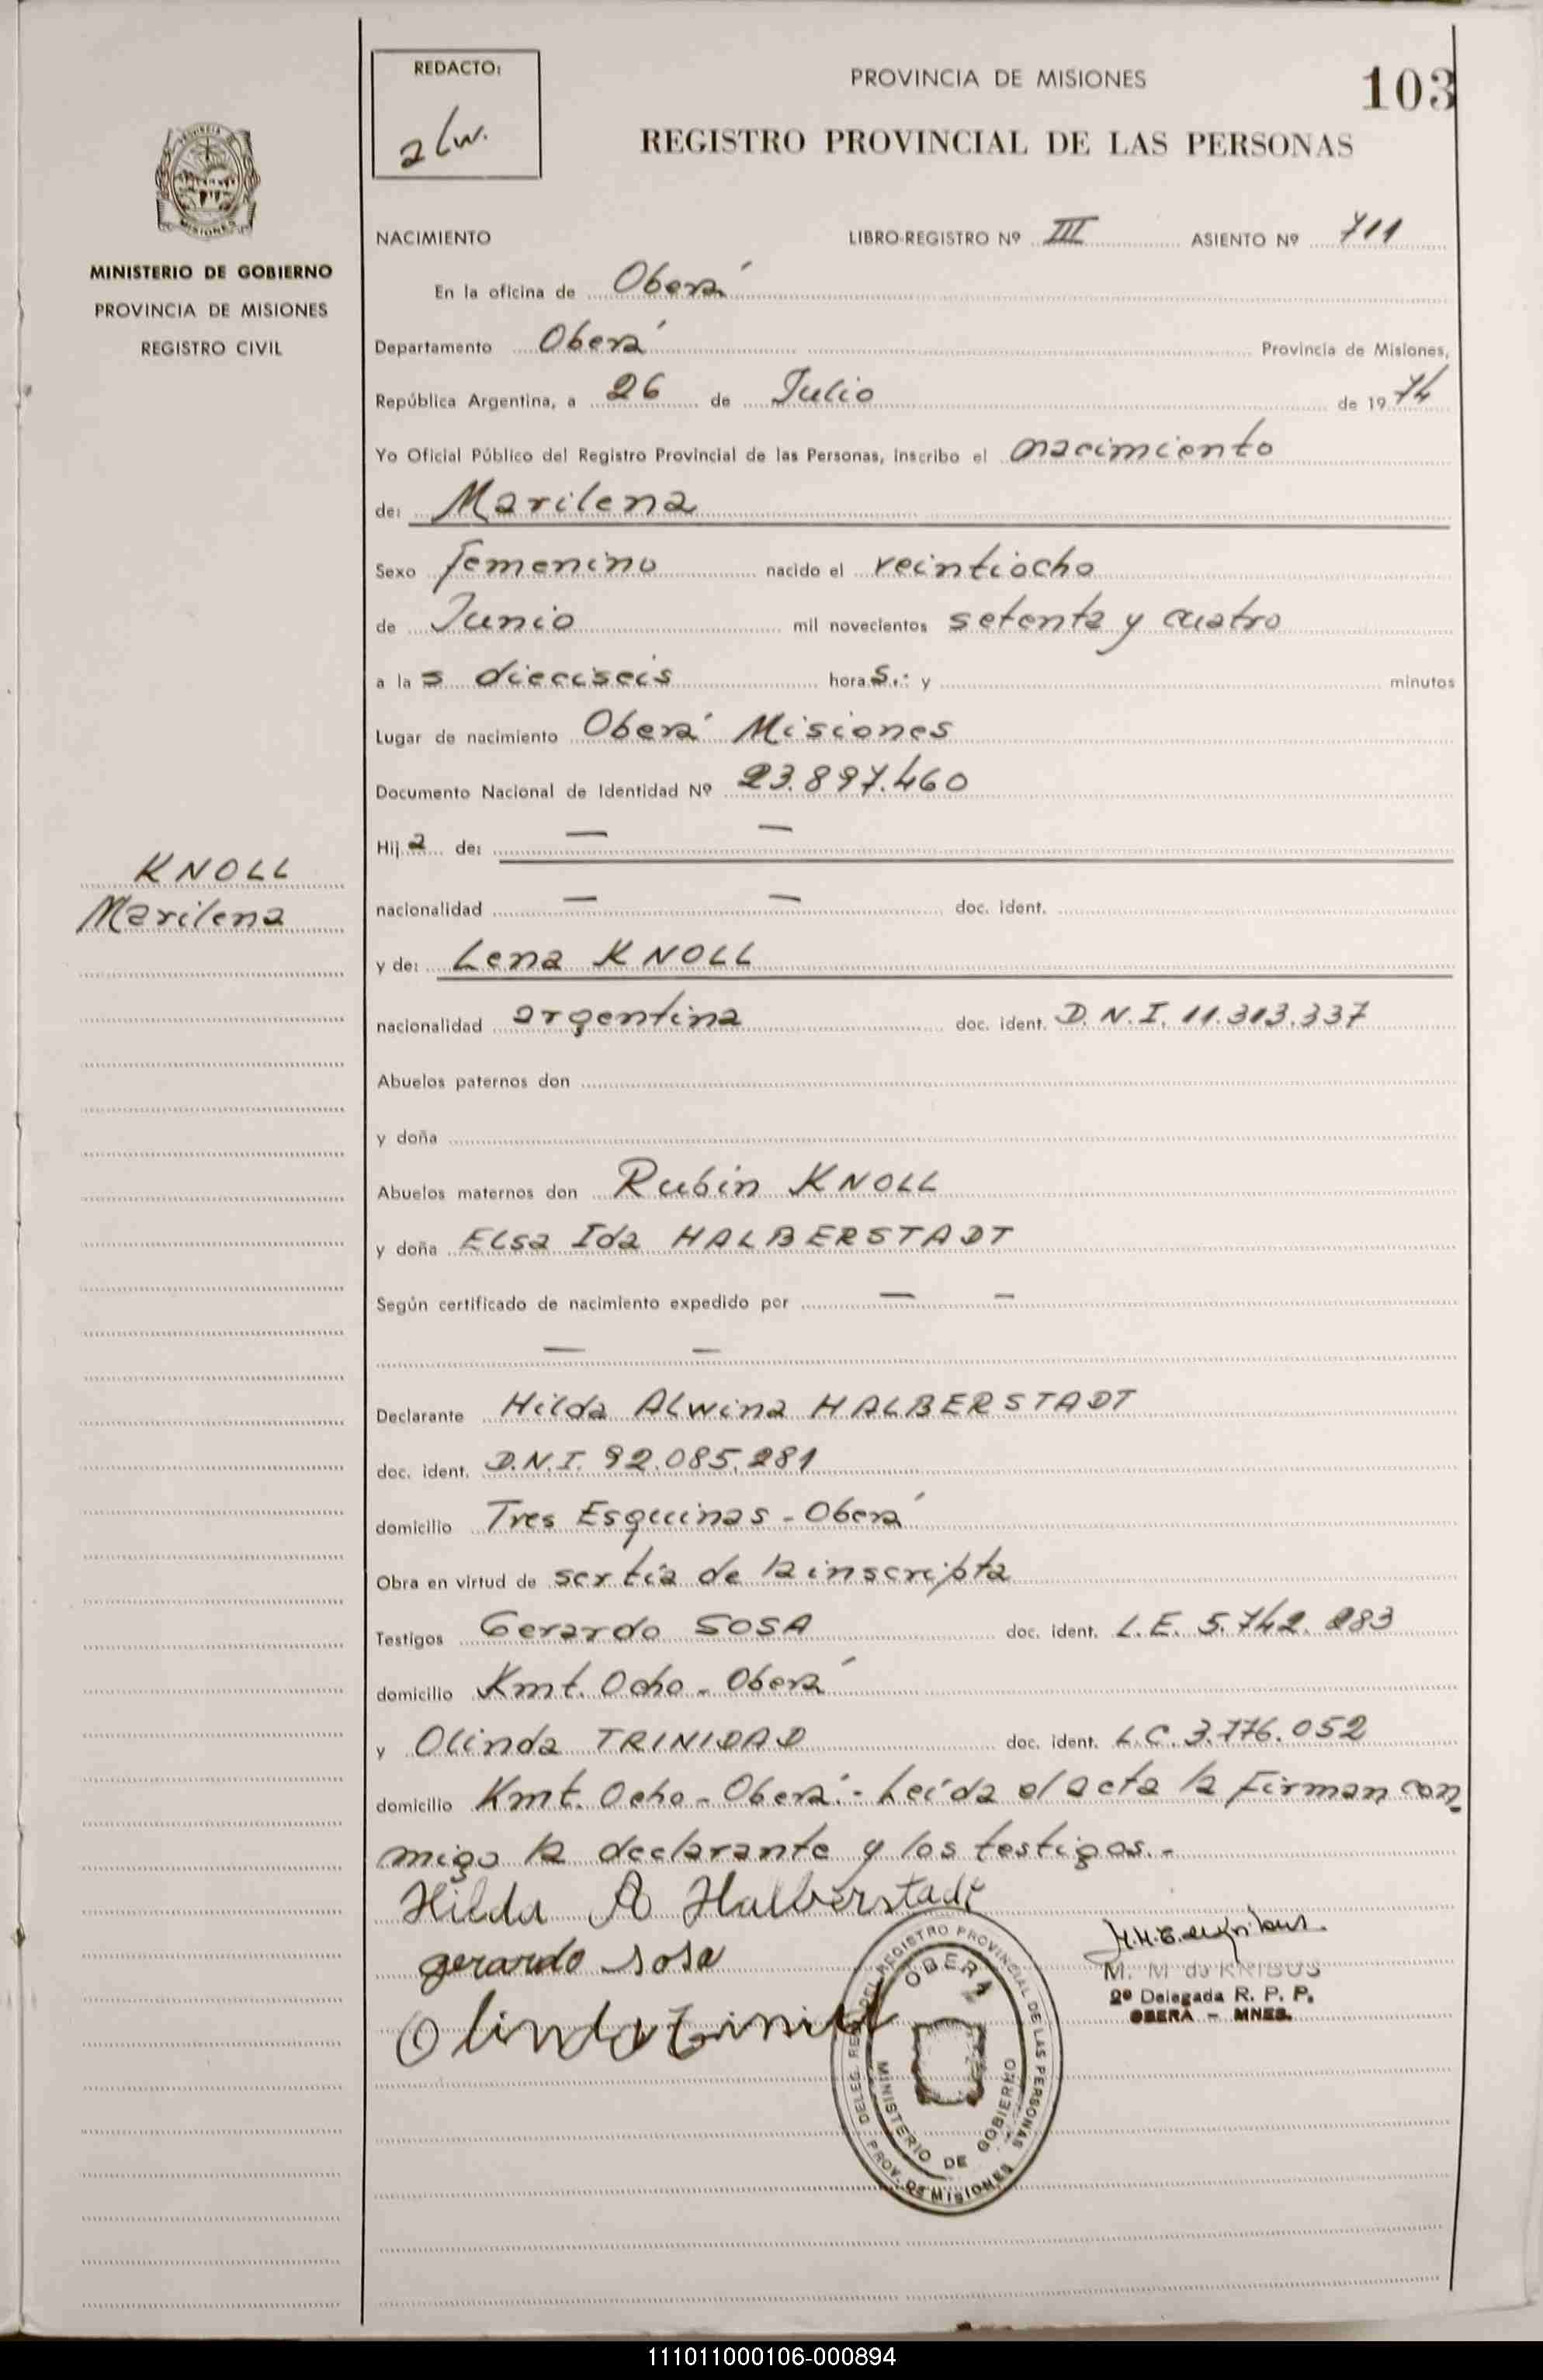 REDACTO:
alw.
PROVINCIA DE MISIONES
103
REGISTRO PROVINCIAL DE LAS PERSONAS
MISIONES
MINISTERIO DE GOBIERNO
PROVINCIA DE MISIONES
REGISTRO CIVIL
NACIMIENTO LIBRO-REGISTRO Nº III ASIENTO Nº 711
En la oficina de Oberá
Departamento Oberá Provincia de Misiones,
República Argentina, a 26 de Julio de 1974
Yo Oficial Público del Registro Provincial de las Personas, inscribo el nacimiento
de: Marilena
Sexo femenino nacido el veintiocho
de Junio mil novecientos setenta y cuatro
a las dieciseis horas.: y minutos
Lugar de nacimiento Oberá Misiones
Documento Nacional de Identidad Nº 23.897.460
Hija de: — —
KNOLL
Marilena
nacionalidad — — doc. ident.
y de: Lena KNOLL
nacionalidad argentina doc. ident. D.N.I. 11.313.337
Abuelos paternos don
y doña
Abuelos maternos don Rubin KNOLL
y doña Elsa Ida HALBERSTADT
Según certificado de nacimiento expedido por — —
— —
Declarante Hilda Alwina HALBERSTADT
doc. ident. D.N.I. 92.085.281
domicilio Tres Esquinas - Oberá
Obra en virtud de ser tía de la inscripta
Testigos Gerardo SOSA doc. ident. L.E. 5.742.283
domicilio Kmt. Ocho - Oberá
y Olinda TRINIDAD doc. ident. L.C. 3.776.052
domicilio Kmt. Ocho - Oberá.- Leída el acta la firman con
migo la declarante y los testigos.-
Hilda A Halberstadt
gerardo sosa
Olinda
M. M de
2º Delegada R. P. P.
OBERÁ - MNES.
DELEG. REG. DEL REGISTRO PROVINCIAL DE LAS PERSONAS
OBERA
MINISTERIO DE GOBIERNO
PROV. DE MISIONES
111011000106-000894